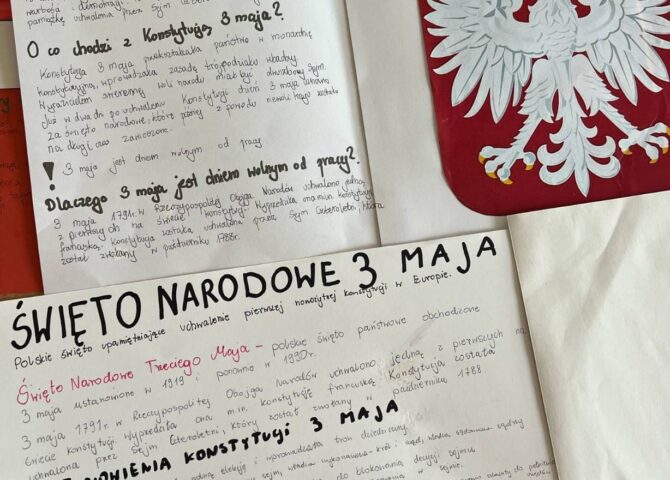 pamiątkę uchwalenia przez Sejm
O co chodzi z Konstytucją 3 maja?
Konstytucja 3 maja przekształcała państwo w monarchię
konstytucyjną, wprowadzała zasadę trójpodziału władzy.
Wyrazicielem suwerennej woli narodu miał być dwuizbowy Sejm.
Już w dwa dni po uchwaleniu Konstytucji dzień 3 maja uznano
za święto narodowe, które później z powodu niewoli kraju zostało
na długi czas zawieszone.
! 3 maja jest dniem wolnym od pracy
Dlaczego 3 maja jest dniem wolnym od pracy?
3 maja 1791r. w Rzeczypospolitej Obojga Narodów uchwalono jedną
z pierwszych na świecie konstytucji. Wyprzedziła ona min. konstytucję
francuską. Konstytucja została uchwalona przez Sejm Czteroletni, który
został zwołany w październiku 1788r.
ŚWIĘTO NARODOWE 3 MAJA
Polskie święto upamiętniające uchwalenie pierwszej nowożytnej konstytucji w Europie.
Święto Narodowe Trzeciego Maja - polskie święto państwowe obchodzone
3 maja ustanowione w 1919 i ponownie w 1990r.
3 maja 1791r. w Rzeczypospolitej Obojga Narodów uchwalono jedną z pierwszych na
świecie konstytucji. Wyprzedziła ona min. konstytucję francuską. Konstytucja została
uchwalona przez Sejm Czteroletni, który został zwołany w październiku 1788.
KONSTYTUCJI 3 MAJA
elekcję i wprowadzała tron dziedziczny
władza wykonawcza - król i rząd, władza sądownicza sądy
do blokowania decyzji sejmu
w sejmie.